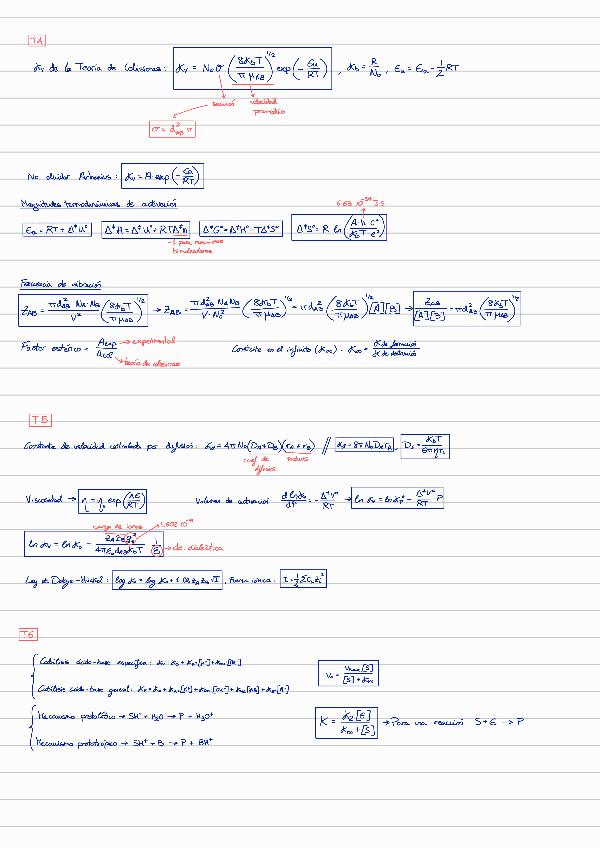 T4
Kv de la Teoría de Colisiones: Kv = N₀ σ (8KbT / π μAB)^1/2 exp(- Eu / RT) , Kb = R / N₀ , Eu = Ea - 1/2 RT
sección velocidad promedio
σ = d²AB π
No olvidar Arrhenius: Kv = A exp(- Ea / RT)
Magnitudes termodinámicas de activación
6.63·10⁻³⁴ J·s
Ea = RT + Δ‡U° Δ‡H° = Δ‡U° + RTΔ‡n Δ‡G° = Δ‡H° - TΔ‡S° Δ‡S° = R ln (A·h·c° / Kb·T·e²)
-1 para reacciones bimoleculares
Frecuencia de vibración
ZAB = π d²AB NA·NB / V² (8KbT / π μAB)^1/2 → ZAB = π d²AB NA NB / V·N₀² (8KbT / π μAB)^1/2 = π dAB² (8KbT / π μAB)^1/2 [A][B] → ZAB / [A][B] = π d²AB (8KbT / π μAB)^1/2
Factor estérico = Aexp / Acol → experimental
→ teoría de colisiones
Constante en el infinito (K∞) . K∞ =
T5
Constante de velocidad controlada por difusión: Kd = 4π N₀ (DA + DB)(rA + rB) // Kd = 8π N₀ DA rA , Di = KbT / 6πηri
coef. de difusión radios
Viscosidad → η = η₀ exp(ΔE / RT) Volumen de activación d ln Kv / dP = - Δ‡V° / RT → ln Kv = ln Kv° - Δ‡V° / RT P
carga de iones → 1,602·10⁻¹⁹
ln Kv = ln K₀ - ZA ZB qe² / 4π ε₀ dAB KbT · 1 / εr → cte. dieléctrica
Ley de Debye-Hückel: log Kv = log K₀ + 1.02 zA zB √I , Fuerza iónica: I = 1/2 Σ ci zi²
T6
Catálisis ácido-base específica: Kv = K₀ + KH+[H⁺] + KOH-[OH⁻]
v₀ = vmax [S] / [S] + Km
Catálisis ácido-base general: Kv = K₀ + KH+[H⁺] + KOH-[OH⁻] + KHA[HA] + KA-[A⁻]
Mecanismo protolítico → SH⁺ + H₂O → P + H₃O⁺
K = K₂[E] / Km + [S] → Para una reacción S + E → P
Mecanismo prototrópico → SH⁺ + B → P + BH⁺